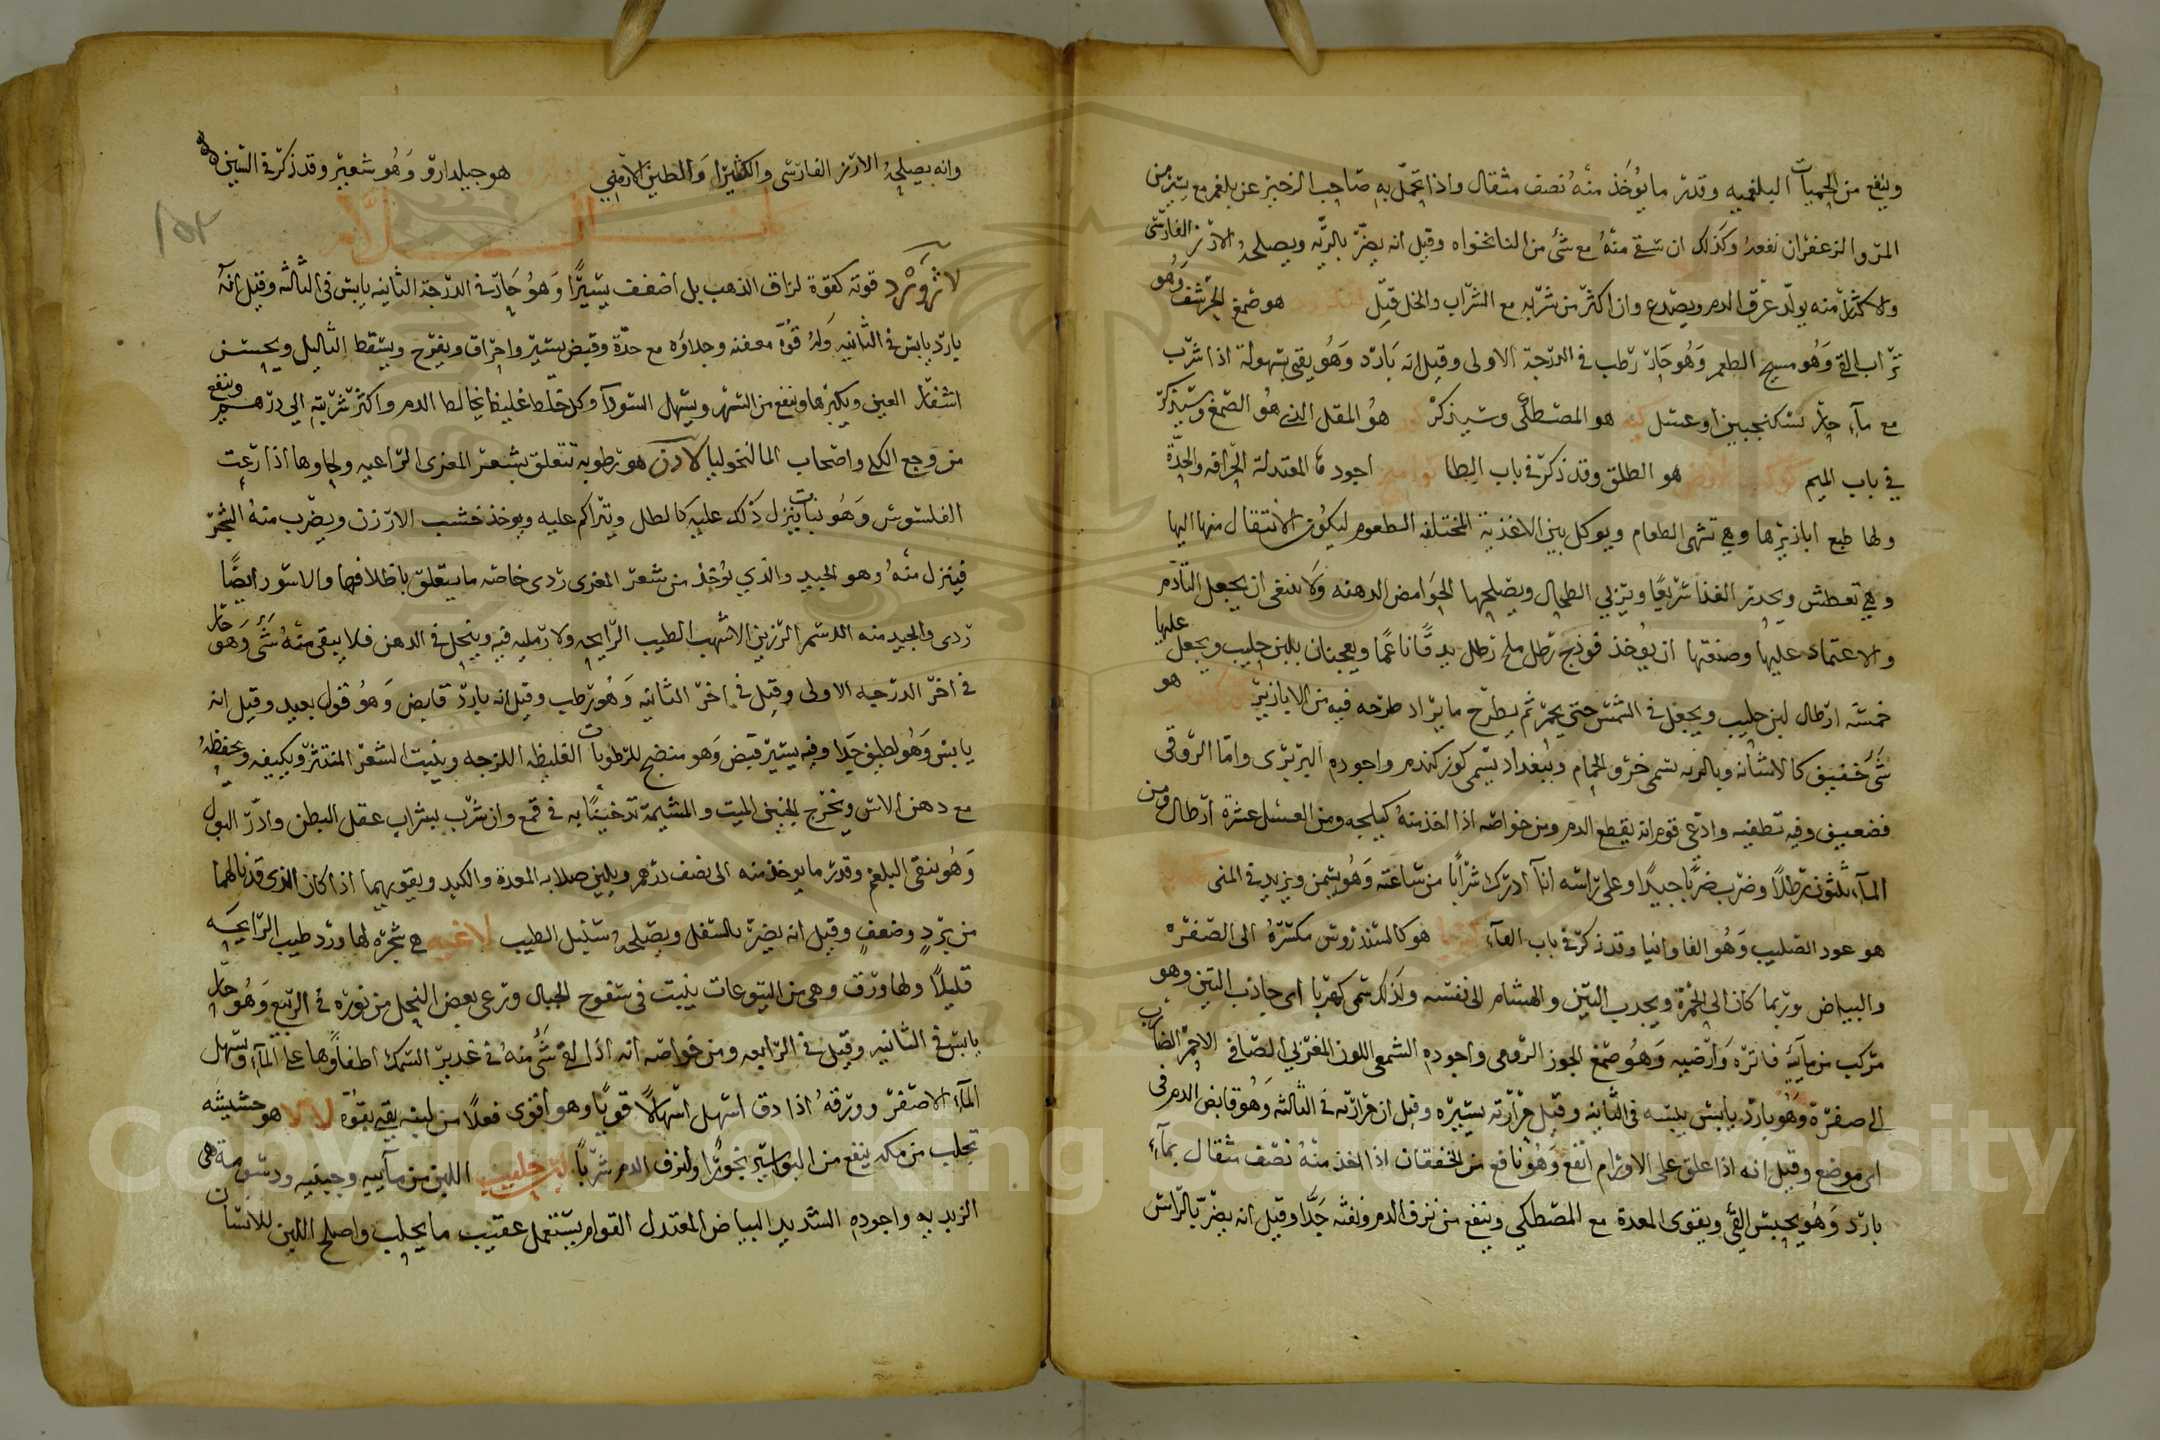 وينفع من الحميات البلغميه وقدر ما يؤخذ منه نصف مثقال واذا تحمل به صاحب الزحير عن بلغم مع يسير من
المر والزعفران نفعه وكذلك ان سقى منه مع شئ من النانخواه وقيل انه يضر بالريه ويصلحه الارز الفارسى
والاكثار منه يولد عرق الدم ويصدع وان اكثر من شربه مع الشراب والخل قتل هو صمغ الحرشف وهو
تراب القئ وهو مسيح الطعم وهو حار رطب فى الدرجة الاولى وقيل انه بارد وهو يقئ بسهولة اذا شرب
مع ماء حار بسكنجبين او عسل كيه هو المصطكى وسيذكر كور هو المقل الذى هو الصمغ وسيذكر
فى باب الميم كوكب الارض هو الطلق وقد ذكر فى باب الطا كواميح اجودها المعتدلة الحرافه والحدة
ولها طبع ابازيرها وهى تشهى الطعام ويوكل بين الاغذية المختلفه الطعوم ليكون الانتقال منها اليها
وهى تعطش ويحدر الغذا سريعا ويربى الطحال ويصلحها الحوامض الدهنه ولا ينبغى ان يجعل التادم
والاعتماد عليها وصنعتها ان يوخذ فوذنج رطل ملح رطل يدقا ناعما ويعجنان بلبن حليب ويجعل عليها
خمسة ارطال لبن حليب ويجعل فى الشمس حتى يحمر ثم يطرح ما يراد طرحه فيه من الابازير هو
شئ خفيف كالاشنانه وبالريه تسمى خرو الحمام وببغداد يسمى كوز كندم واجوده البربرى واما الروقى
فضعيف وفيه تطفيه وادعى قوم انه يقطع الدم ومن خواصه اذا اخذ منه كيلجه ومن العسل عشرة ارطال ومن
الماء ثلثون رطلا وضرب ضربا جيدا وعلى راسه انآ ادرك شرابا من ساعته وهو يسمن ويزيد فى المنى
هو عود الصليب وهو الفاوانيا وقد ذكر فى باب الفآء كهربا هو كالسندروس مكسره الى الصفره
والبياض وربما كان الى الحمرة ويجدب التبن والهشام الى نفسه ولذلك سمى كهربا اى جاذب التبن وهو
مركب من مآئيه فاتره وارضيه وهو صمغ الجوز الرومى واجوده الشمعى اللون المغربى الصافى الاحمر الضارب
الى صفرة وهو بارد يابس يبسه فى الثانيه وقيل حرارته يسيره وقيل ان حرارته فى الثالثه وهو قابض الدم فى
اى موضع وقيل انه اذا علق على الاورام انفع وهو نافع من الخفقان اذا اخذ منه نصف مثقال بمآء
بارد وهو يحبس القئ ويقوى المعدة مع المصطكى وينفع من نزف الدم ونفثه جدا وقيل انه يضر بالراس
وانه يصلحه الارز الفارسى والكثيرا والطين الارمنى هو جيلدارو وهو شعير وقد ذكر فى الشين
بـاب الـلام
لازورد قوته كقوة لزاق الذهب بل اضعف يسيرا وهو حار فى الدرجة الثانيه يابس فى الثالثه وقيل انه
بارد يابس فى الثانيه وله قوه معفنه وجلاوه مع حدة وقبض يسير واحراق ويقرح ويسقط الثاليل ويحسن
اشفار العين ويكثرها وينفع من السهر ويسهل السودآ وكل خلط غليظ يخالط الدم واكثر شربته الى درهم وينفع
من وجع الكلى واصحاب المالنخوليا لاذن هو رطوبه تتعلق بشعر المعزى الراعيه ولحاوها اذا رعت
القلسوس وهو نبات ينزل ذلك عليه كالطل ويتراكم عليه ويوخذ خشب الارزن ويضرب منه الشجر
فينزل منه وهو الجيد والذى يوخذ من شعر المعزى ردى خاصه ما يتعلق باظلافها والاسود ايضا
ردى والجيد منه الدسم الرزين الاشهب الطيب الرايحه ولا رمليه فيه وينحل فى الدهن فلا يبقى منه شئ وهو حار
فى اخر الدرجه الاولى وقيل فى اخر الثانيه وهو رطب وقيل انه بارد قابض وهو قول بعيد وقيل انه
يابس وهو لطيف جدا وفيه يسير قبض وهو منضج للرطوبات الغليظه اللزجه وينبت الشعر المنتثر ويكثفه ويحفظه
مع دهن الاس ويخرج الجنين الميت والمشيمة تدخينا به فى قمع وان شرب بشراب عقل البطن وادر البول
وهو ينقى البلغم وقدر ما يوخذ منه الى نصف درهم ويلين صلابه المعدة والكبد ويقويهما اذا كان الذى قد نالهما
من برد وضعف وقيل انه يضر بالسفل ويصلحه سنبل الطيب لاغيه هى شجره لها ورد طيب الرايحه
قليلا ولها ورق وهى من اليتوعات ينبت فى سفوح الجبال وترعى بعض النحل من نوره فى الربيع وهو حار
يابس فى الثانيه وقيل فى الرابعه ومن خواصه انه اذا القى شئ منه فى غدير السمك اطفاوها على المآء ويسهل
المآء الاصفر وورقه اذا دق اسهل اسهالا قويا وهو اقوى فعلا من لبنه يقئ بقوه لالا هو حشيشه
تجلب من مكه ينفع من البواسير بخورا ولنزف الدم شربا لبن حليب اللبن من مآئيه وجبنيه ودسومة هى
الزبد به واجوده الشديد البياض المعتدل القوام يستعمل عقيب ما يحلب واصلح اللبن للانسان
Copyright © King Saud University
1957